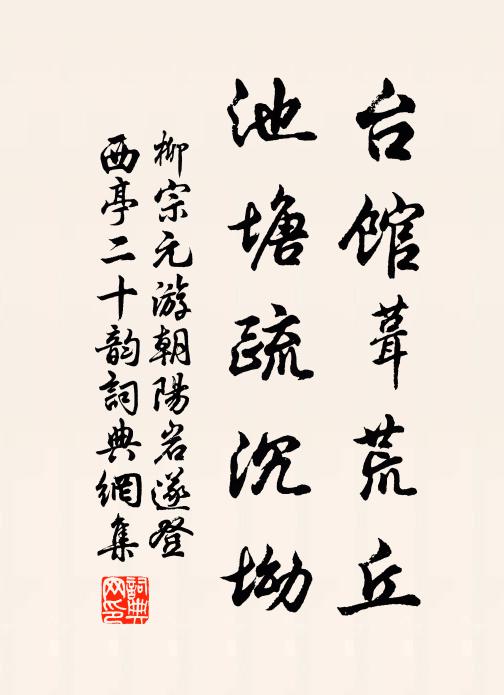 台馆葺荒丘
池塘疏沉坳
柳宗元游朝陽岩遂登
西亭二十韵詞典網集
詞典网印